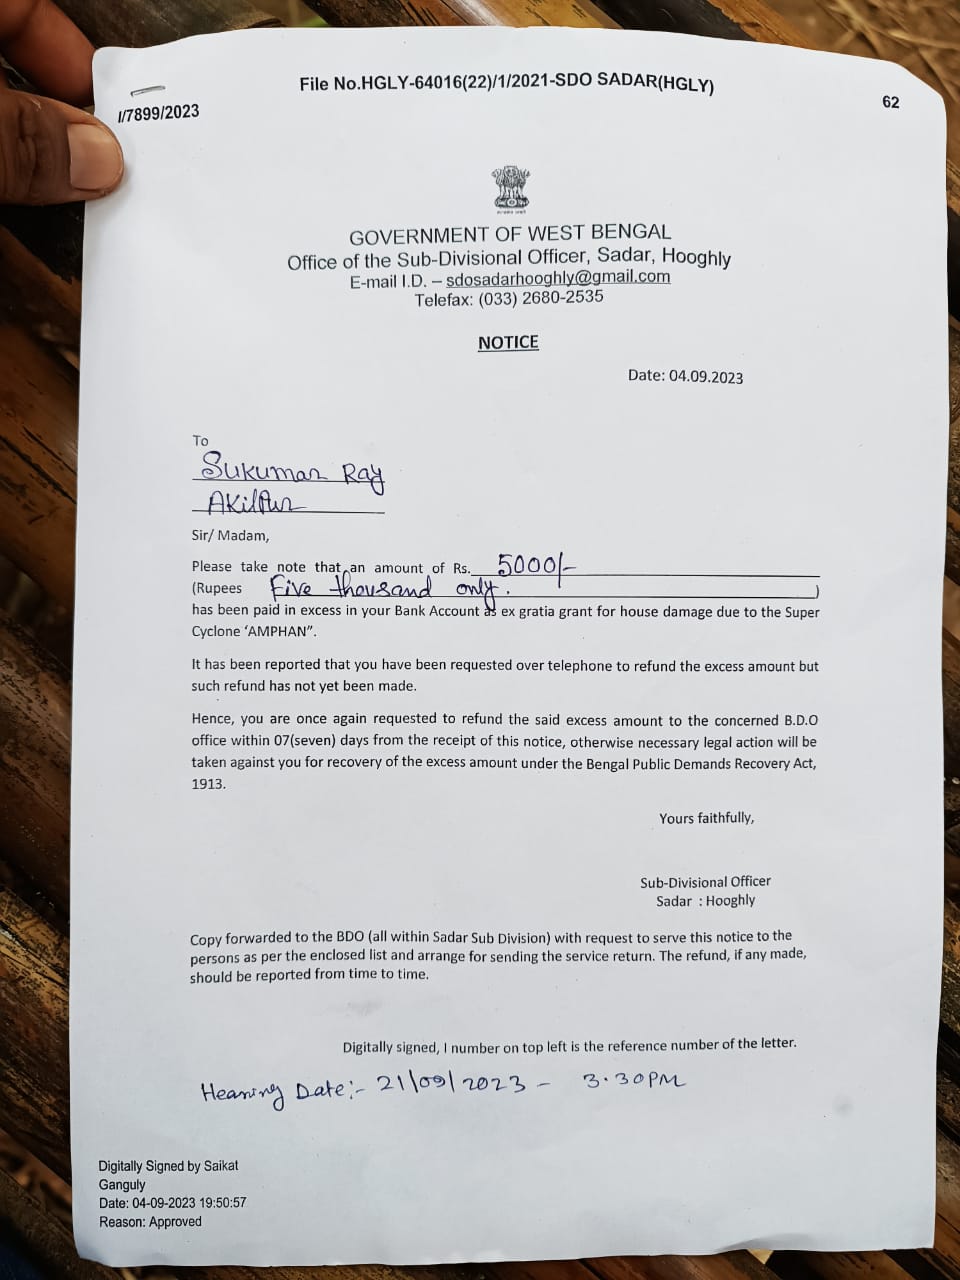 File No.HGLY-64016(22)/1/2021-SDO SADAR(HGLY)
I/7899/2023
62
GOVERNMENT OF WEST BENGAL
Office of the Sub-Divisional Officer, Sadar, Hooghly
E-mail I.D. – sdosadarhooghly@gmail.com
Telefax: (033) 2680-2535
NOTICE
Date: 04.09.2023
To
Sukumar Ray
Akilpur
Sir/ Madam,
Please take note that an amount of Rs. 5000/-
(Rupees Five thousand only. )
has been paid in excess in your Bank Account as ex gratia grant for house damage due to the Super
Cyclone ‘AMPHAN”.
It has been reported that you have been requested over telephone to refund the excess amount but
such refund has not yet been made.
Hence, you are once again requested to refund the said excess amount to the concerned B.D.O
office within 07(seven) days from the receipt of this notice, otherwise necessary legal action will be
taken against you for recovery of the excess amount under the Bengal Public Demands Recovery Act,
1913.
Yours faithfully,
Sub-Divisional Officer
Sadar : Hooghly
Copy forwarded to the BDO (all within Sadar Sub Division) with request to serve this notice to the
persons as per the enclosed list and arrange for sending the service return. The refund, if any made,
should be reported from time to time.
Digitally signed, I number on top left is the reference number of the letter.
Hearing Date:- 21/09/2023 - 3.30PM
Digitally Signed by Saikat
Ganguly
Date: 04-09-2023 19:50:57
Reason: Approved